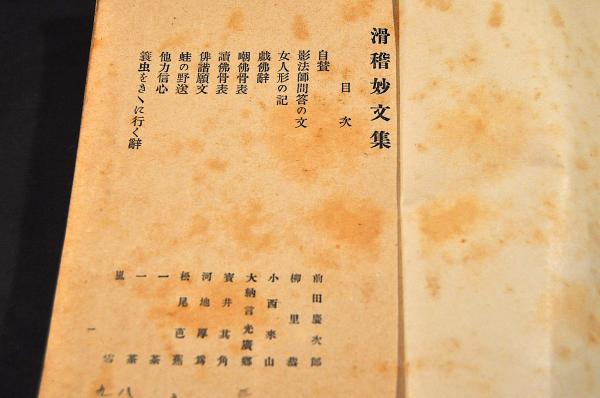 滑稽妙文集
目次
自賛
影法師問答の文
女人形の記
戯佛辭
嘲佛骨表
讀佛骨表
俳諧願文
蛙の野送
他力信心
蓑虫をきゝに行く辭
前田慶次郎
柳里恭
小西來山
大納言光廣郷
寳井其角
河地厚爲
松尾芭蕉
一茶
一茶
嵐雪
一
三
八
九